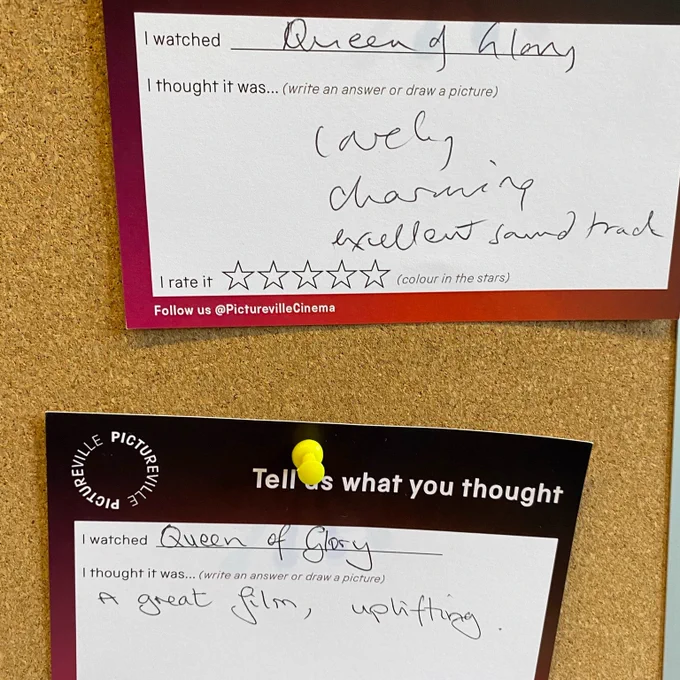 I watched Queen of Glory
I thought it was... (write an answer or draw a picture)
Lovely
charming
excellent sound track
I rate it (colour in the stars)
Follow us @PicturevilleCinema
PICTUREVILLE PICTUREVILLE
Tell us what you thought
I watched Queen of Glory
I thought it was... (write an answer or draw a picture)
A great film, uplifting.